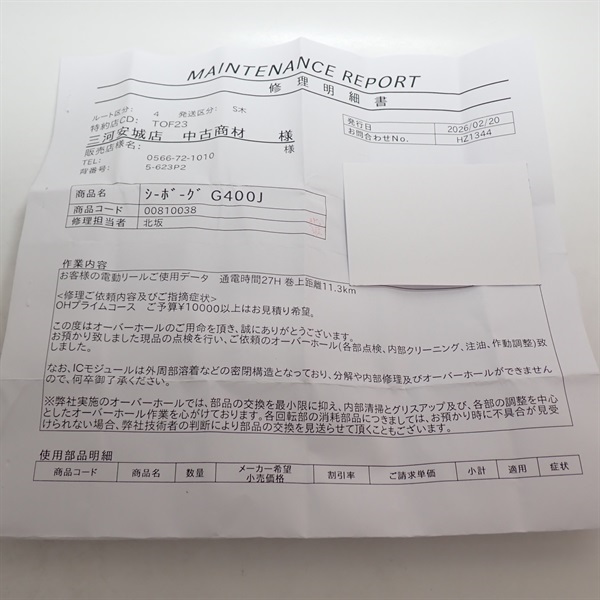 MAINTENANCE REPORT
修理明細書
ルート区分: 4 発送区分: S木
特約店CD: TOF23
三河安城店 中古商材 様
販売店様名: 様
TEL: 0566-72-1010
荷番号: S-623P2
発行日 2026/02/20
お問合わせNo. HZ1344
商品名 シーボーグ G400J
商品コード 00810038
修理担当者 北坂
作業内容
お客様の電動リールご使用データ 通電時間27H 巻上距離11.3km
<修理ご依頼内容及びご指摘症状>
OHプライムコース ご予算¥10000以上はお見積り希望。
この度はオーバーホールのご用命を頂き、誠にありがとうございます。
お預かり致しました現品の点検を行い、ご依頼のオーバーホール(各部点検、内部クリーニング、注油、作動調整)致
しました。
なお、ICモジュールは外周部溶着などの密閉構造となっており、分解や内部修理及びオーバーホールができません
ので、何卒御了承ください。
※弊社実施のオーバーホールでは、部品の交換を最小限に抑え、内部清掃とグリスアップ及び、各部の調整を中心
としたオーバーホール作業を心がけております。各回転部の消耗部品につきましては、お預かり時に不具合が見受
けられない場合、弊社技術者の判断により部品の交換を見送らせて頂くこともございます。
使用部品明細
商品コード 商品名 数量 メーカー希望小売価格 割引率 ご請求単価 小計 適用 症状